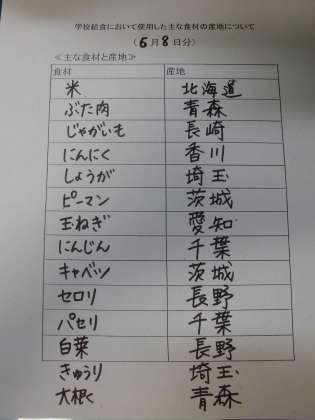 学校給食において使用した主な食材の産地について
(6月8日分)
≪主な食材と産地≫
食材 産地
米 北海道
ぶた肉 青森
じゃがいも 長崎
にんにく 香川
しょうが 埼玉
ピーマン 茨城
玉ねぎ 愛知
にんじん 千葉
キャベツ 茨城
セロリ 長野
パセリ 千葉
白菜 長野
きゅうり 埼玉
大根 青森